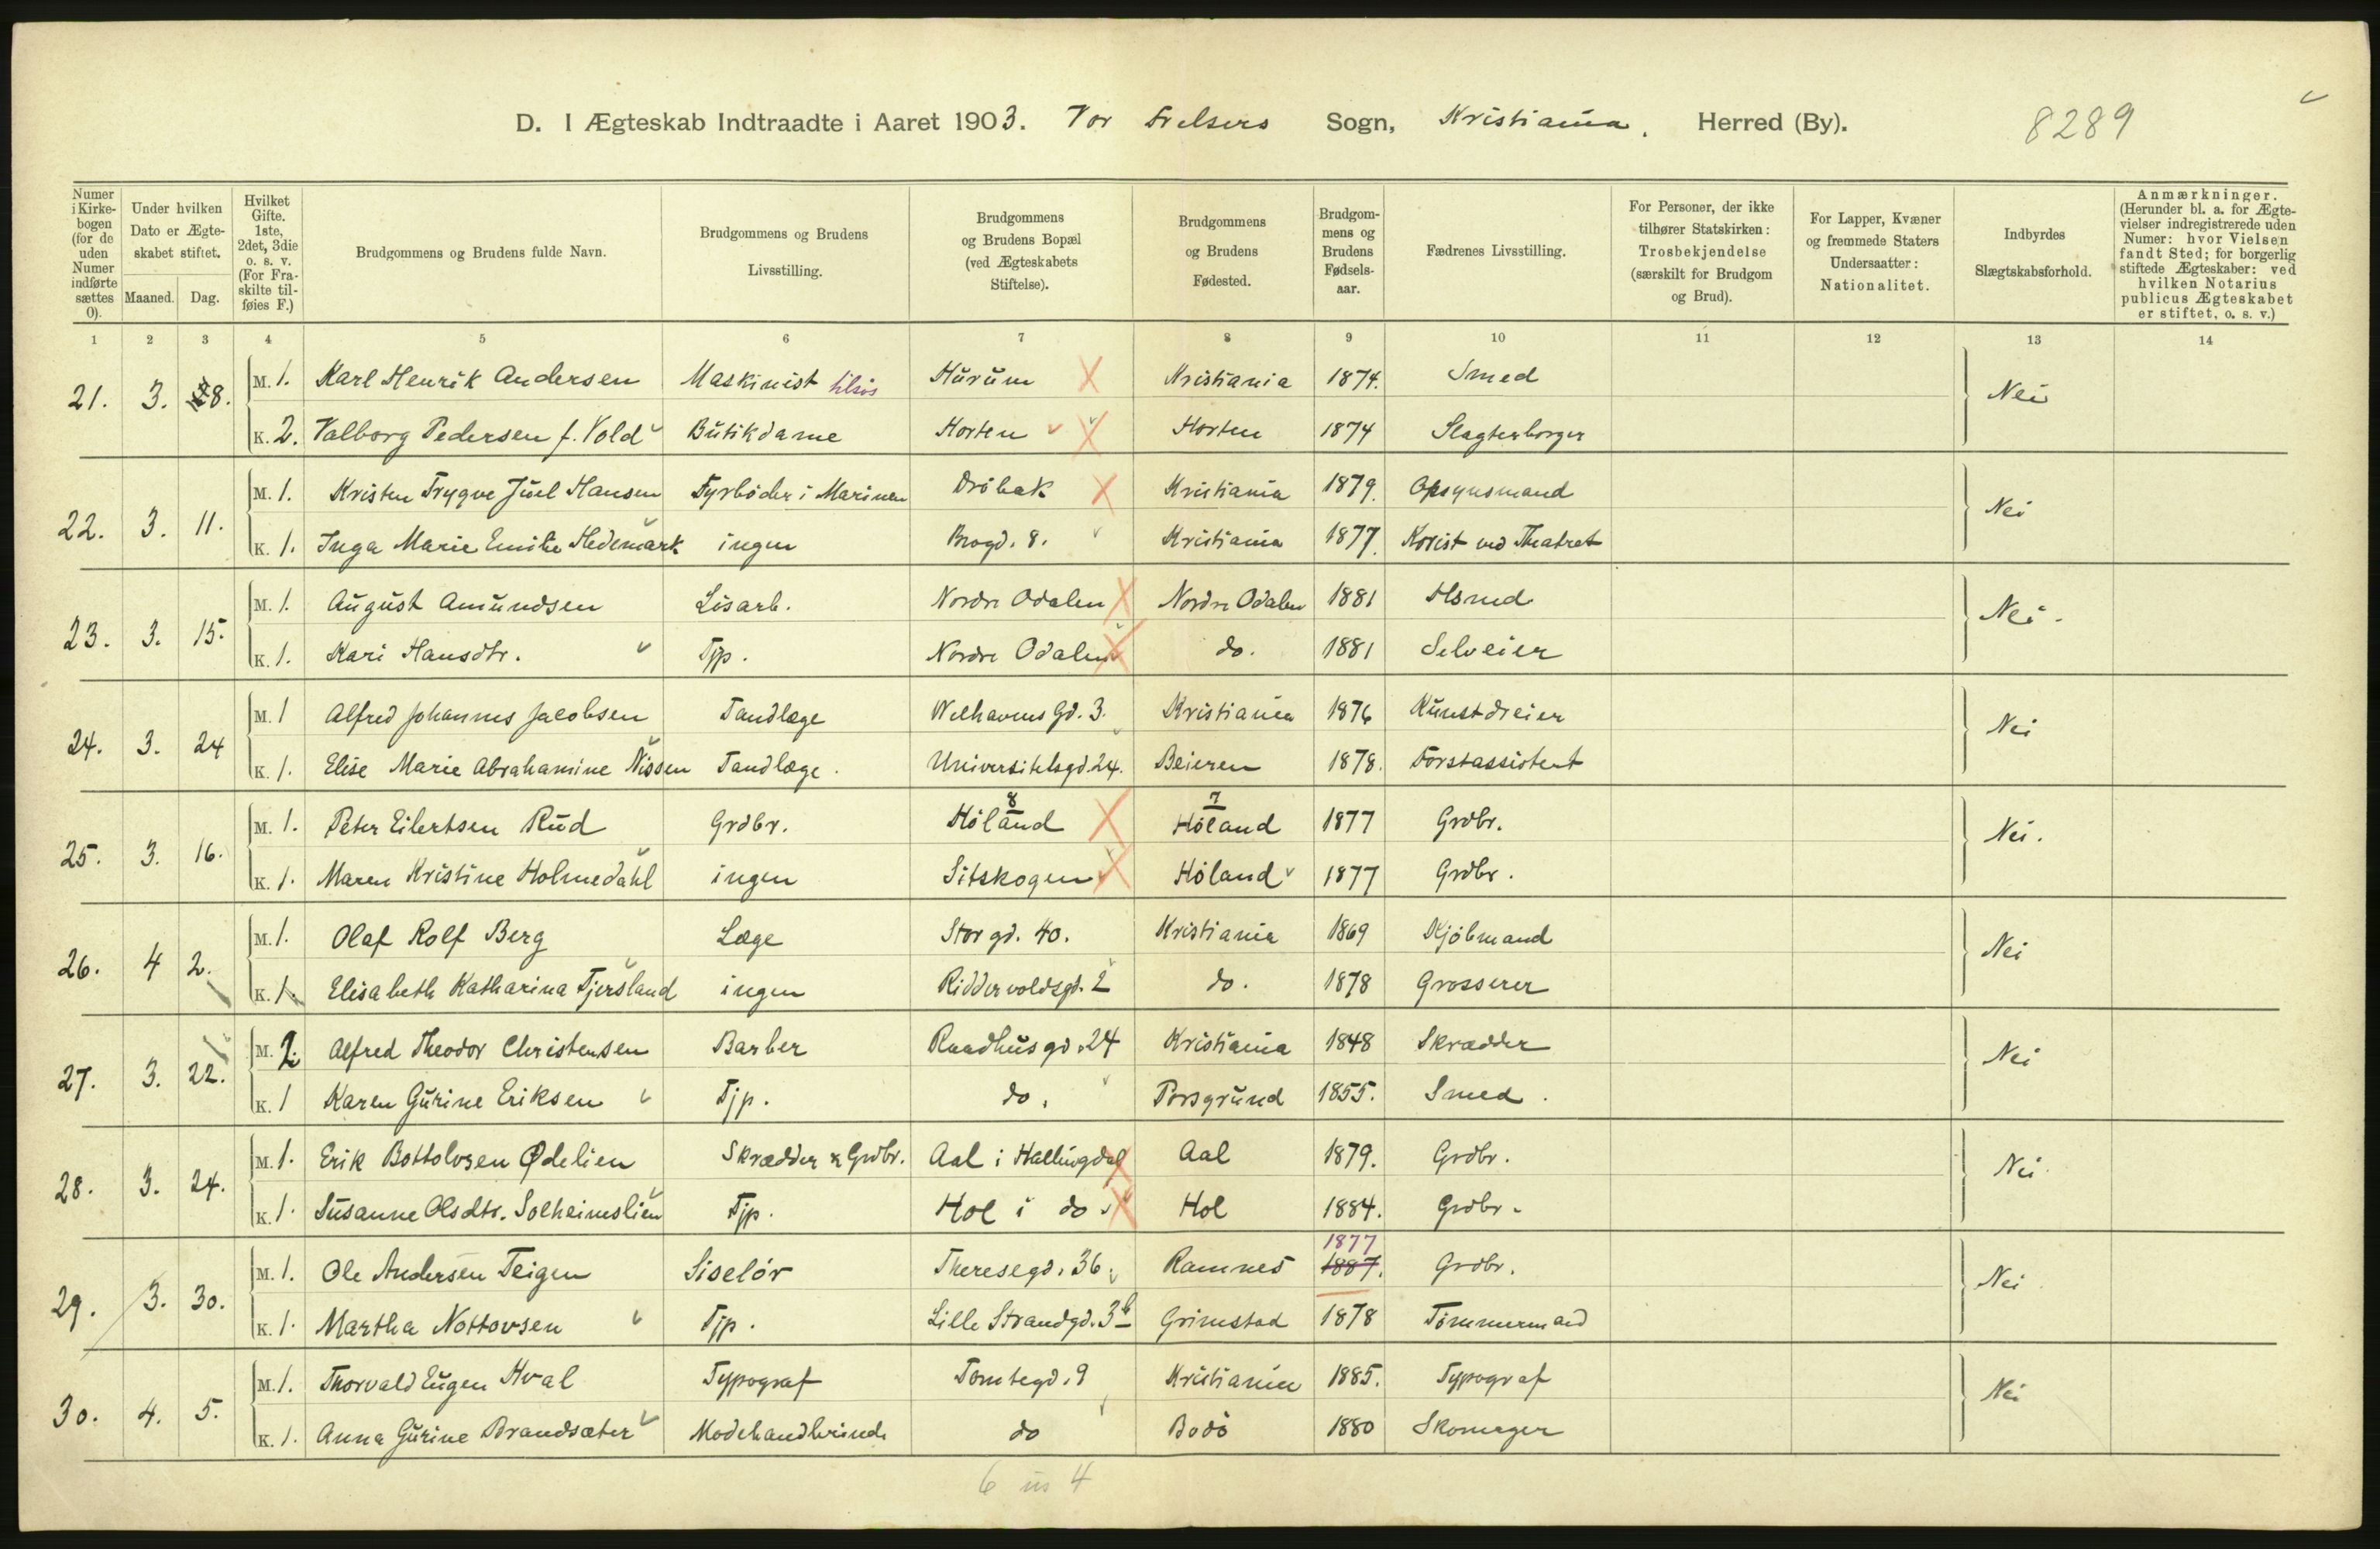 D. I Ægteskab Indtraadte i Aaret 1903. Vor Frelsers Sogn, Kristiania. Herred (By). 8289
Numer i Kirke-bogen (for de uden Numer indførte sættes 0). Under hvilken Dato er Ægte-skabet stiftet. Maaned. Dag. Hvilket Gifte. 1ste, 2det, 3die o. s. v. (For Fra-skilte til-føies F.) Brudgommens og Brudens fulde Navn. Brudgommens og Brudens Livsstilling. Brudgommens og Brudens Bopæl (ved Ægteskabets Stiftelse). Brudgommens og Brudens Fødested. Brudgom-mens og Brudens Fødsels-aar. Fædrenes Livsstilling. For Personer, der ikke tilhører Statskirken: Trosbekjendelse (særskilt for Brudgom og Brud). For Lapper, Kvæner og fremmede Staters Undersaatter: Nationalitet. Indbyrdes Slægtskabsforhold. Anmærkninger. (Herunder bl. a. for Ægte-vielser indregistrerede uden Numer: hvor Vielsen fandt Sted; for borgerlig stiftede Ægteskaber: ved hvilken Notarius publicus Ægteskabet er stiftet, o. s. v.)
1 2 3 4 5 6 7 8 9 10 11 12 13 14
21. 3. 8. M. 1. Karl Henrik Andersen Maskinist tilsjøs Hurum Kristiania 1874. Smed Nei
K. 2. Valborg Pedersen f. Vold Butikdame Horten Horten 1874 Slagterborger
22. 3. 11. M. 1. Kristen Trygve Juel Hansen Fyrbøder i Marinen Drøbak Kristiania 1879. Opsynsmand Nei
K. 1. Inga Marie Emilie Hedemark ingen Brogd. 8. Kristiania 1877. Korist ved Theatret
23. 3. 15. M. 1. August Amundsen Løsarb. Nordre Odalen Nordre Odalen 1881 Hsmd Nei.
K. 1. Kari Hansdtr. Tjp. Nordre Odalen do. 1881 Selveier
24. 3. 24 M. 1 Alfred Johannes Jacobsen Tandlæge Welhavens Gd. 3. Kristiania 1876 Kunstdreier Nei
K. 1. Elise Marie Abrahamine Nissen Tandlæge. Universitetsgd. 24. Beieren 1878. Forstassistent
25. 3. 16. M. 1. Peter Eilertsen Rud Grdbr. Høland 8 Høland 7 1877 Grdbr. Nei.
K. 1. Maren Kristine Holmedahl ingen Sitskogen Høland 1877 Grdbr.
26. 4 2. M. 1. Olaf Rolf Berg Læge Storgd. 40. Kristiania 1869 Kjøbmand Nei
K. 1. Elisabeth Katharina Fjersland ingen Riddervoldsgd. 2 do. 1878 Grosserer
27. 3. 22. M. 2. Alfred Theodor Christensen Barber Raadhusgd. 24 Kristiania 1848 Skrædder Nei
K. 1 Karen Gurine Eriksen Tjp. do. Porsgrund 1855. Smed.
28. 3. 24. M. 1. Erik Bottolvsen Ødelien Skrædder & Grdbr. Aal i Hallingdal Aal 1879. Grdbr. Nei
K. 1. Susanne Olsdtr. Solheimslien Tjp. Hol i do Hol 1884. Grdbr.
29. 3. 30. M. 1. Ole Andersen Teigen Siselør Theresegd. 36. Ramnes 1877 1887. Grdbr. Nei
K. 1. Martha Nottovsen Tjp. Lille Strandgd. 3b Grimstad 1878 Tømmermand
30. 4. 5. M. 1. Thorvald Eugen Hval Typograf Tomtegd. 9 Kristiania 1885. Typograf Nei
K. 1. Anna Gurine Brandsæter Modehandlerinde do Bodø 1880 Skomager